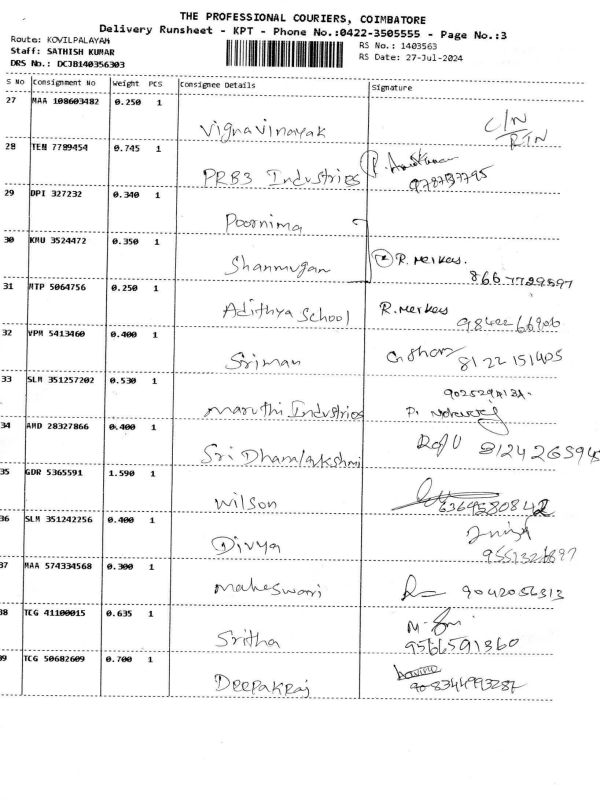 THE PROFESSIONAL COURIERS, COIMBATORE
Delivery Runsheet - KPT - Phone No.:0422-3505555 - Page No.:3
Route: KOVILPALAYAM
Staff: SATHISH KUMAR
DRS No.: DCJB140356303
RS No.: 1403563
RS Date: 27-Jul-2024
S No Consignment No Weight PCS Consignee Details Signature
27 MAA 108603482 0.250 1
Vignavinayak C/N RTN
28 TEN 7789454 0.745 1
PRB3 Industries
29 DPI 327232 0.340 1
Poornima
30 KMU 3524472 0.350 1
Shanmugan R. Merkes.
31 MTP 5064756 0.250 1
Adithya School R. Merkes
32 VPM 5413460 0.400 1
Sriman 8122151405
33 SLM 351257202 0.530 1
Maruthi Industries P.
34 AMD 28327866 0.400 1
Sri Dhanalakshmi
35 GDR 5365591 1.590 1
Wilson 6369580842
36 SLM 351242256 0.400 1
Divya
37 MAA 574334568 0.300 1
Maheswari 9042056313
38 TCG 41100015 0.635 1
Sritha 9566591360
39 TCG 50682609 0.700 1
Deepakraj 8344993287